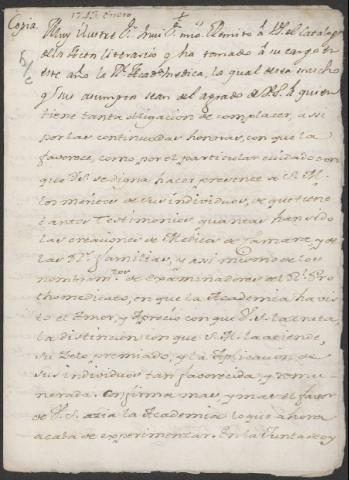 1743 enero
Copia
Muy Ilustre Sr. Amui Sr. mio. Remito á V.S. el Catalago
de la Accion literario q ha tomado á su cargo en
este año la Rl. Academia Medica, la qual desea mucho
q sus asumptos sean del agrado de V.S. á quien
tiene tanta obligacion de complacer, assi
por las continuadas honras, con que la
favorece, como por el particular cuidado con
que V.S. se digna hacer presente a S. M.
los meritos de sus individuos, de que tiene
tantos testimonios, quantas han sido
las creaciones de Medicos de Camara, y de
las Rs. familias, y assi mismo de los
nombramtos. de examinadores del Rl. Pro
thomedicato, en que la Academia ha vis
to el Amor, y Aprecio con que V. S. la trata,
la distincion con que S. M. la atiende,
su zelo premiado, y la Aplicacion de
sus individuos tan favorecida, y remu
nerada. Confirma mas, y mas el favor
de V. S. azia la Academia lo que ahora
acaba de experimentar. En la Junta de oy